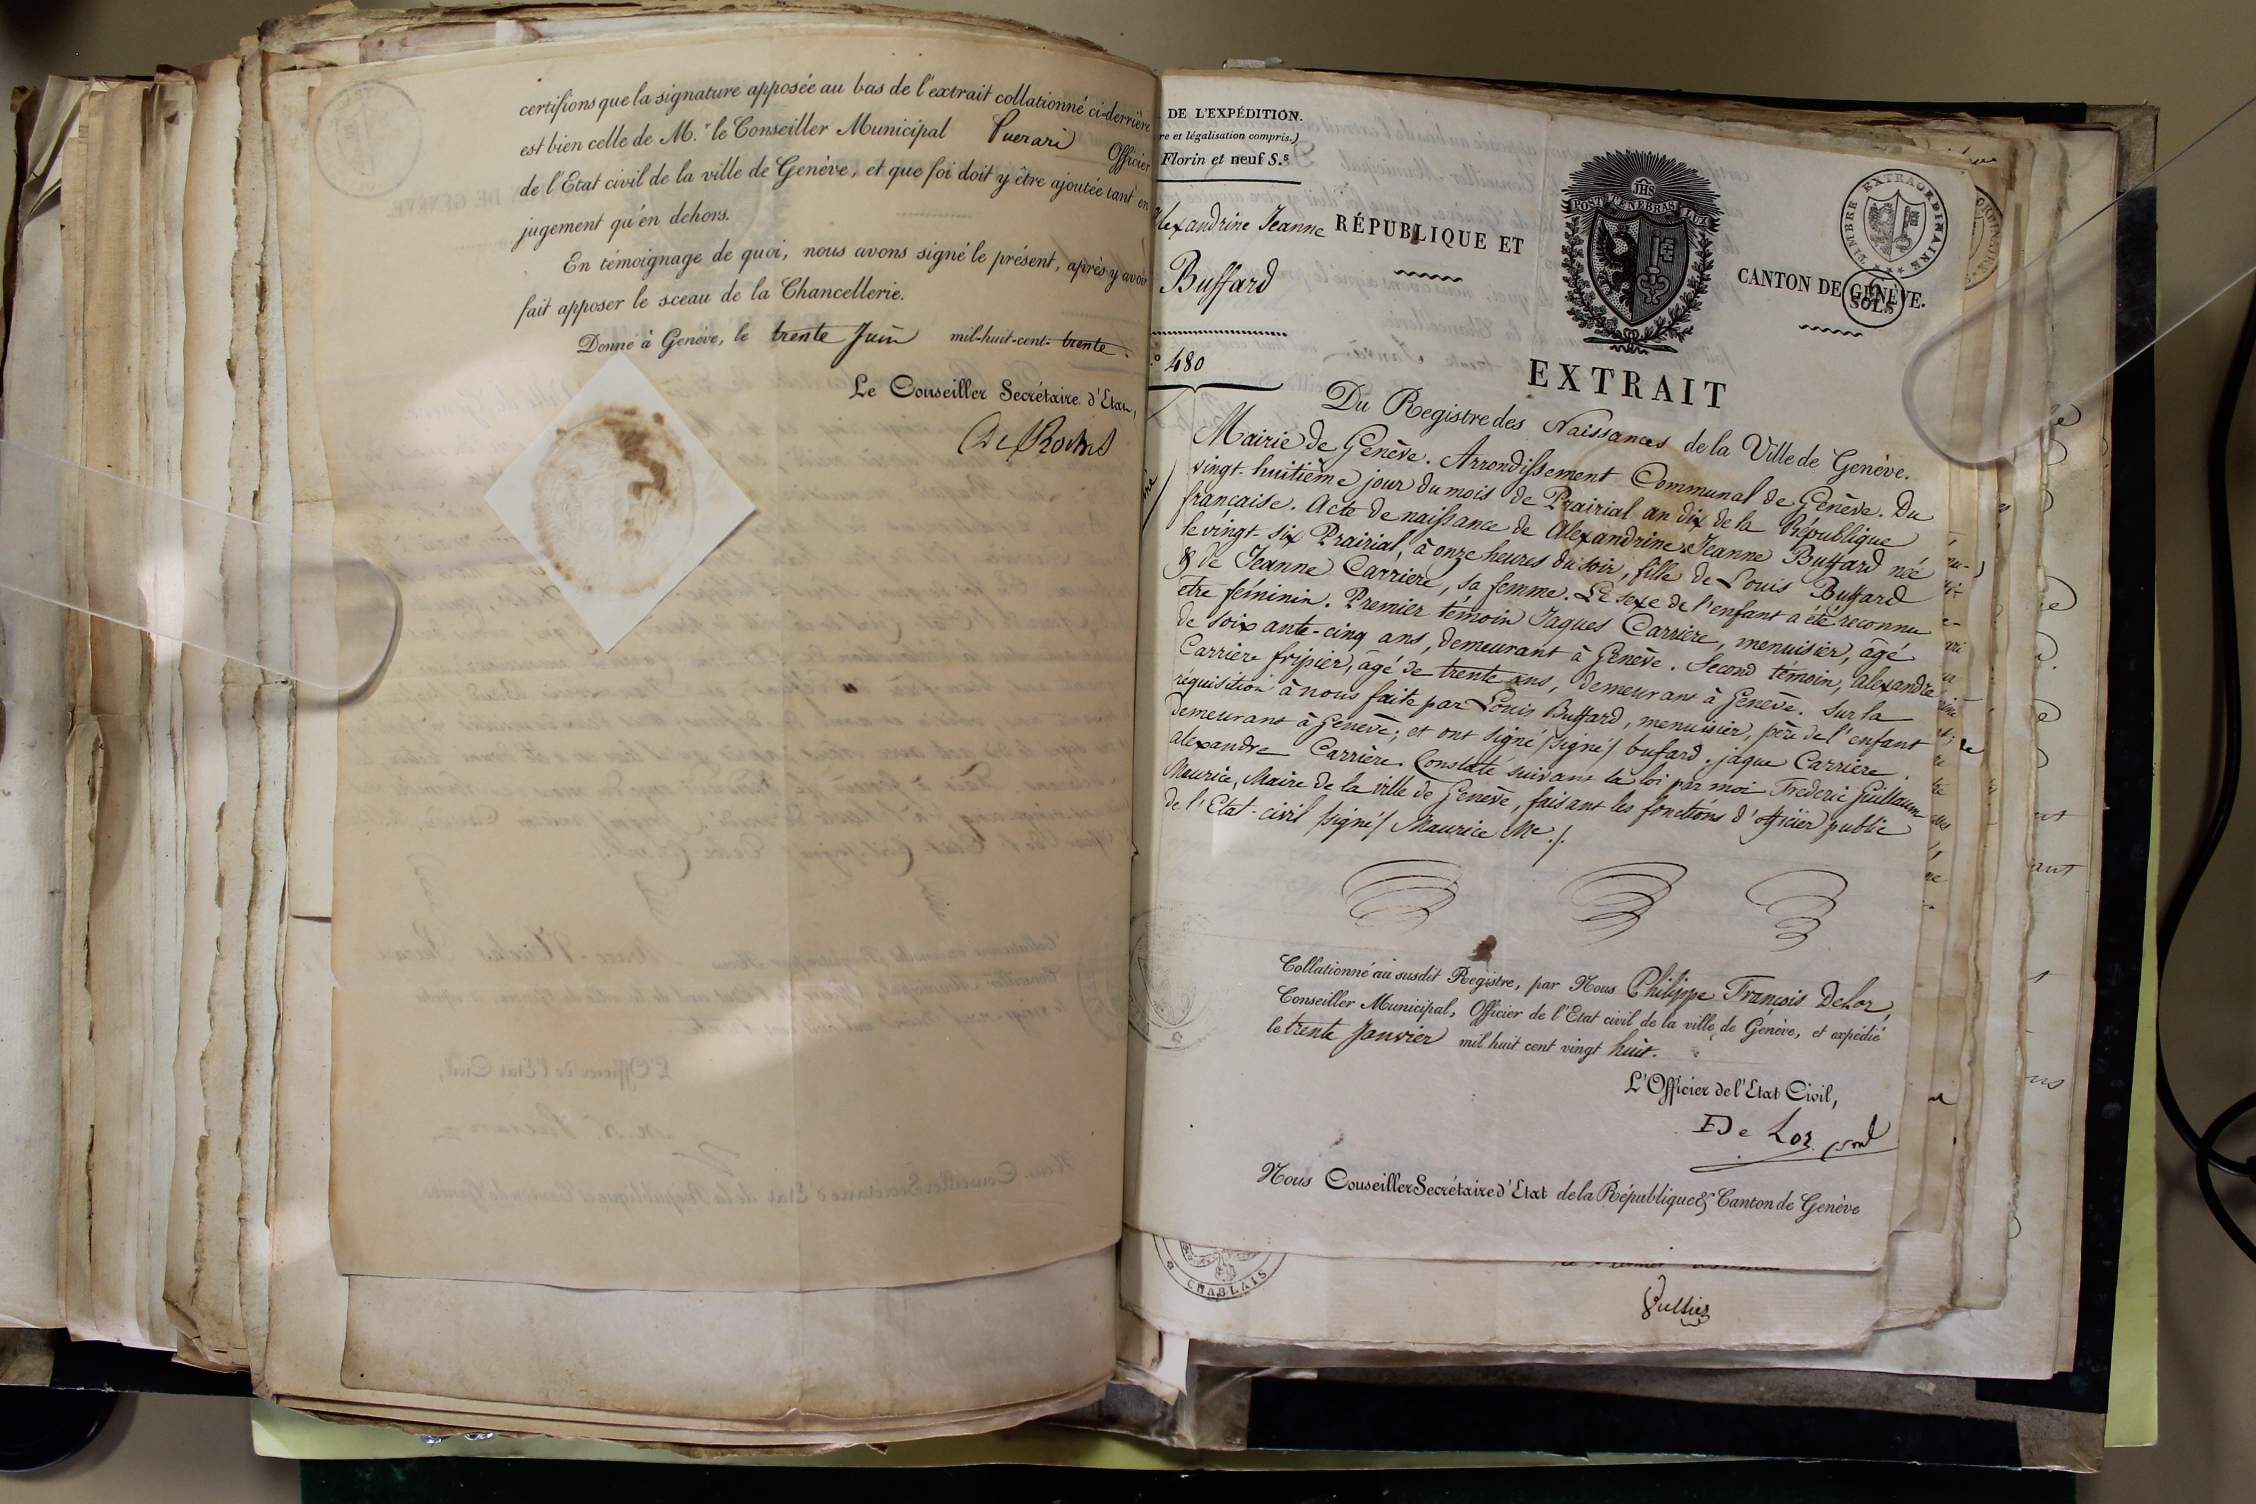 certifions que la signature apposée au bas de l'extrait collationné ci-derrière
est bien celle de M.r le Conseiller Municipal Puerari Officier
de l'Etat civil de la ville de Genève, et que foi doit y être ajoutée tant en
jugement qu'en dehors.
En témoignage de quoi, nous avons signé le présent, après y avoir
fait apposer le sceau de la Chancellerie.
Donné à Genève, le trente Juin mil-huit-cent-trente.
Le Conseiller Secrétaire d'Etat,
De Roches
DE L'EXPÉDITION.
re et légalisation compris.)
Florin et neuf S.s
Alexandrine Jeanne
Buffard
480
JHS
POST TENEBRAS LUX
RÉPUBLIQUE ET
CANTON DE GENÈVE.
TIMBRE EXTRAORDINAIRE
SOLS
EXTRAIT
Du Registre des Naissances de la Ville de Genève.
Mairie de Genève. Arrondissement Communal de Genève. Du
vingt-huitième jour du mois de Prairial an dix de la République
française. Acte de naissance de Alexandrine Jeanne Buffard née
le vingt-six Prairial, à onze heures du soir, fille de Louis Buffard
& de Jeanne Carriere, sa femme. Le sexe de l'enfant a été reconnu
être féminin. Premier témoin Jaques Carriere, menuisier, âgé
de soixante-cinq ans, demeurant à Genève. Second témoin, alexandre
Carriere fripier, âgé de trente ans, demeurant à Genève. Sur la
réquisition à nous faite par Louis Buffard, menuisier, père de l'enfant
demeurant à Genève; et ont signé /signé/ bufard. jaque Carriere.
alexandre Carrière. Constaté suivant la loi par moi Frederic Guillaume
Maurice, Maire de la ville de Genève, faisant les fonctions d'officier public
de l'Etat-civil /signé/ Maurice Me./.
Collationné au susdit Registre, par Nous Philippe François DeLor,
Conseiller Municipal, Officier de l'Etat civil de la ville de Genève, et expédié
le trente Janvier mil huit cent vingt huit.
L'Officier de l'Etat Civil,
De Lor
Nous Conseiller Secrétaire d'Etat de la République & Canton de Genève
CHABLAIS
Vulliez